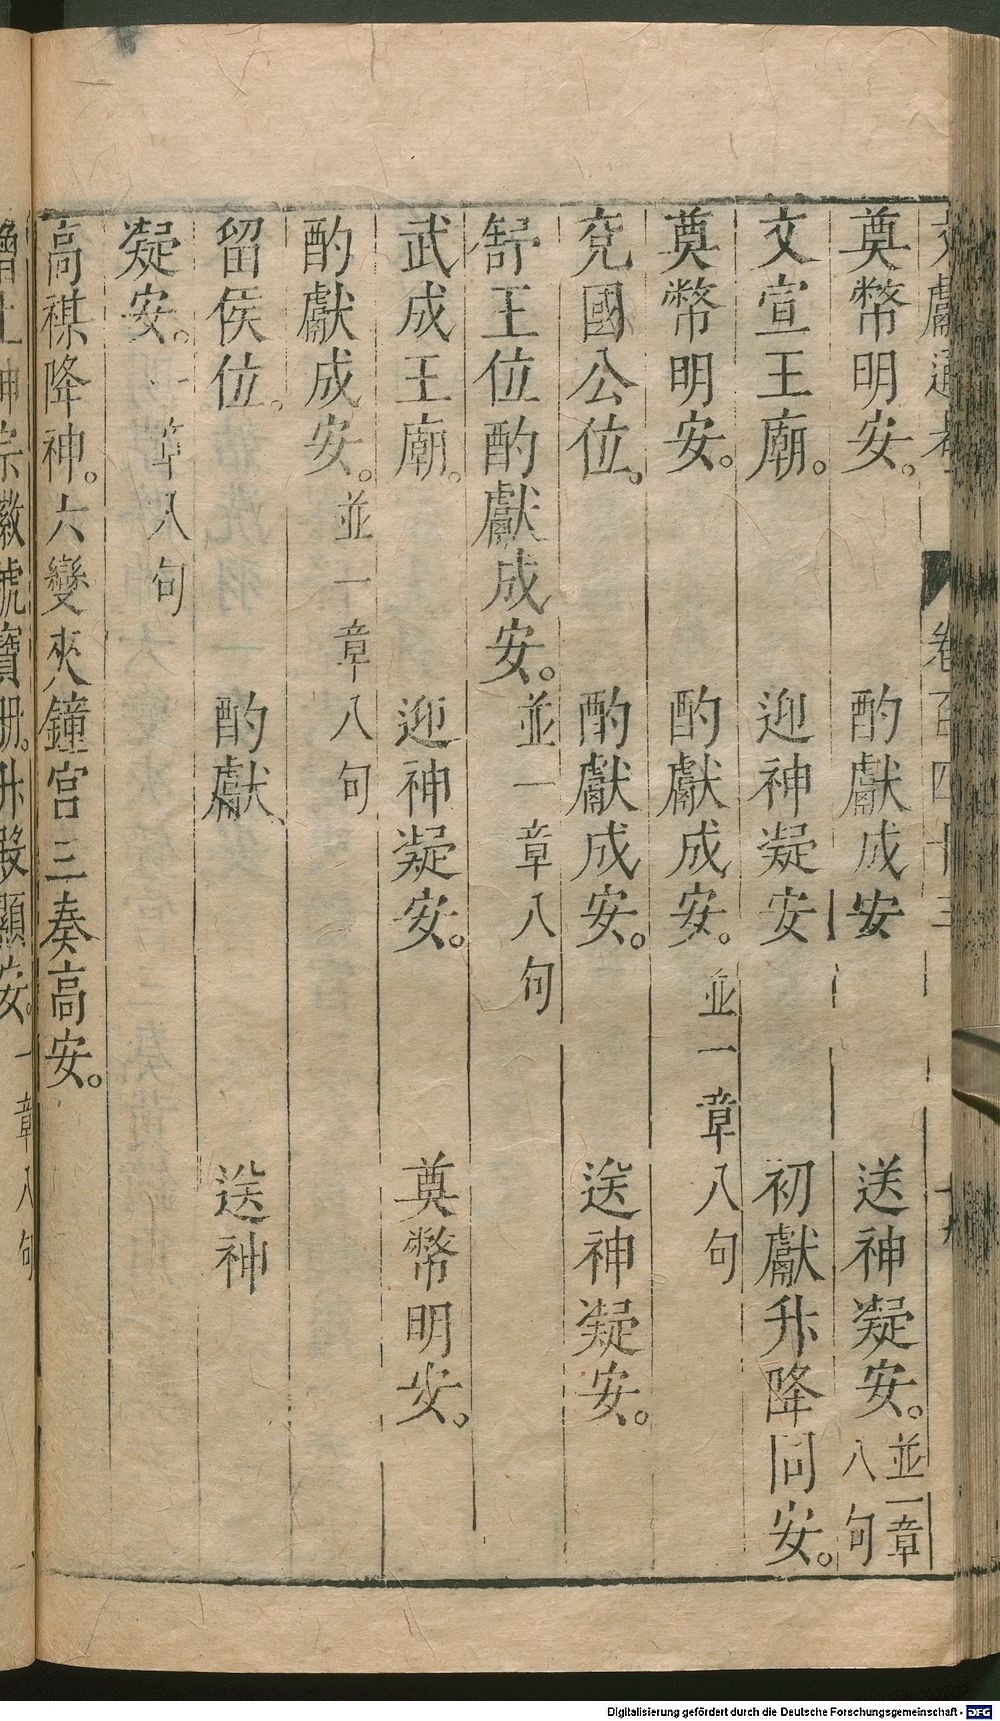 文獻通考 卷百四十三 十九
奠幣明安。 酌獻成安 送神凝安。並一章八句
文宣王廟。 迎神凝安 初獻升降同安。
奠幣明安。 酌獻成安。並一章八句
兗國公位。 酌獻成安。 送神凝安。
舒王位酌獻成安。並一章八句
武成王廟。 迎神凝安。 奠幣明安。
酌獻成安。並一章八句
留侯位。 酌獻、 送神
凝安。一章八句
高禖降神。六變夾鐘宮三奏高安。
上神宗徽號寶册。升殿顯安。一章八句
Digitalisierung gefördert durch die Deutsche Forschungsgemeinschaft - DFG